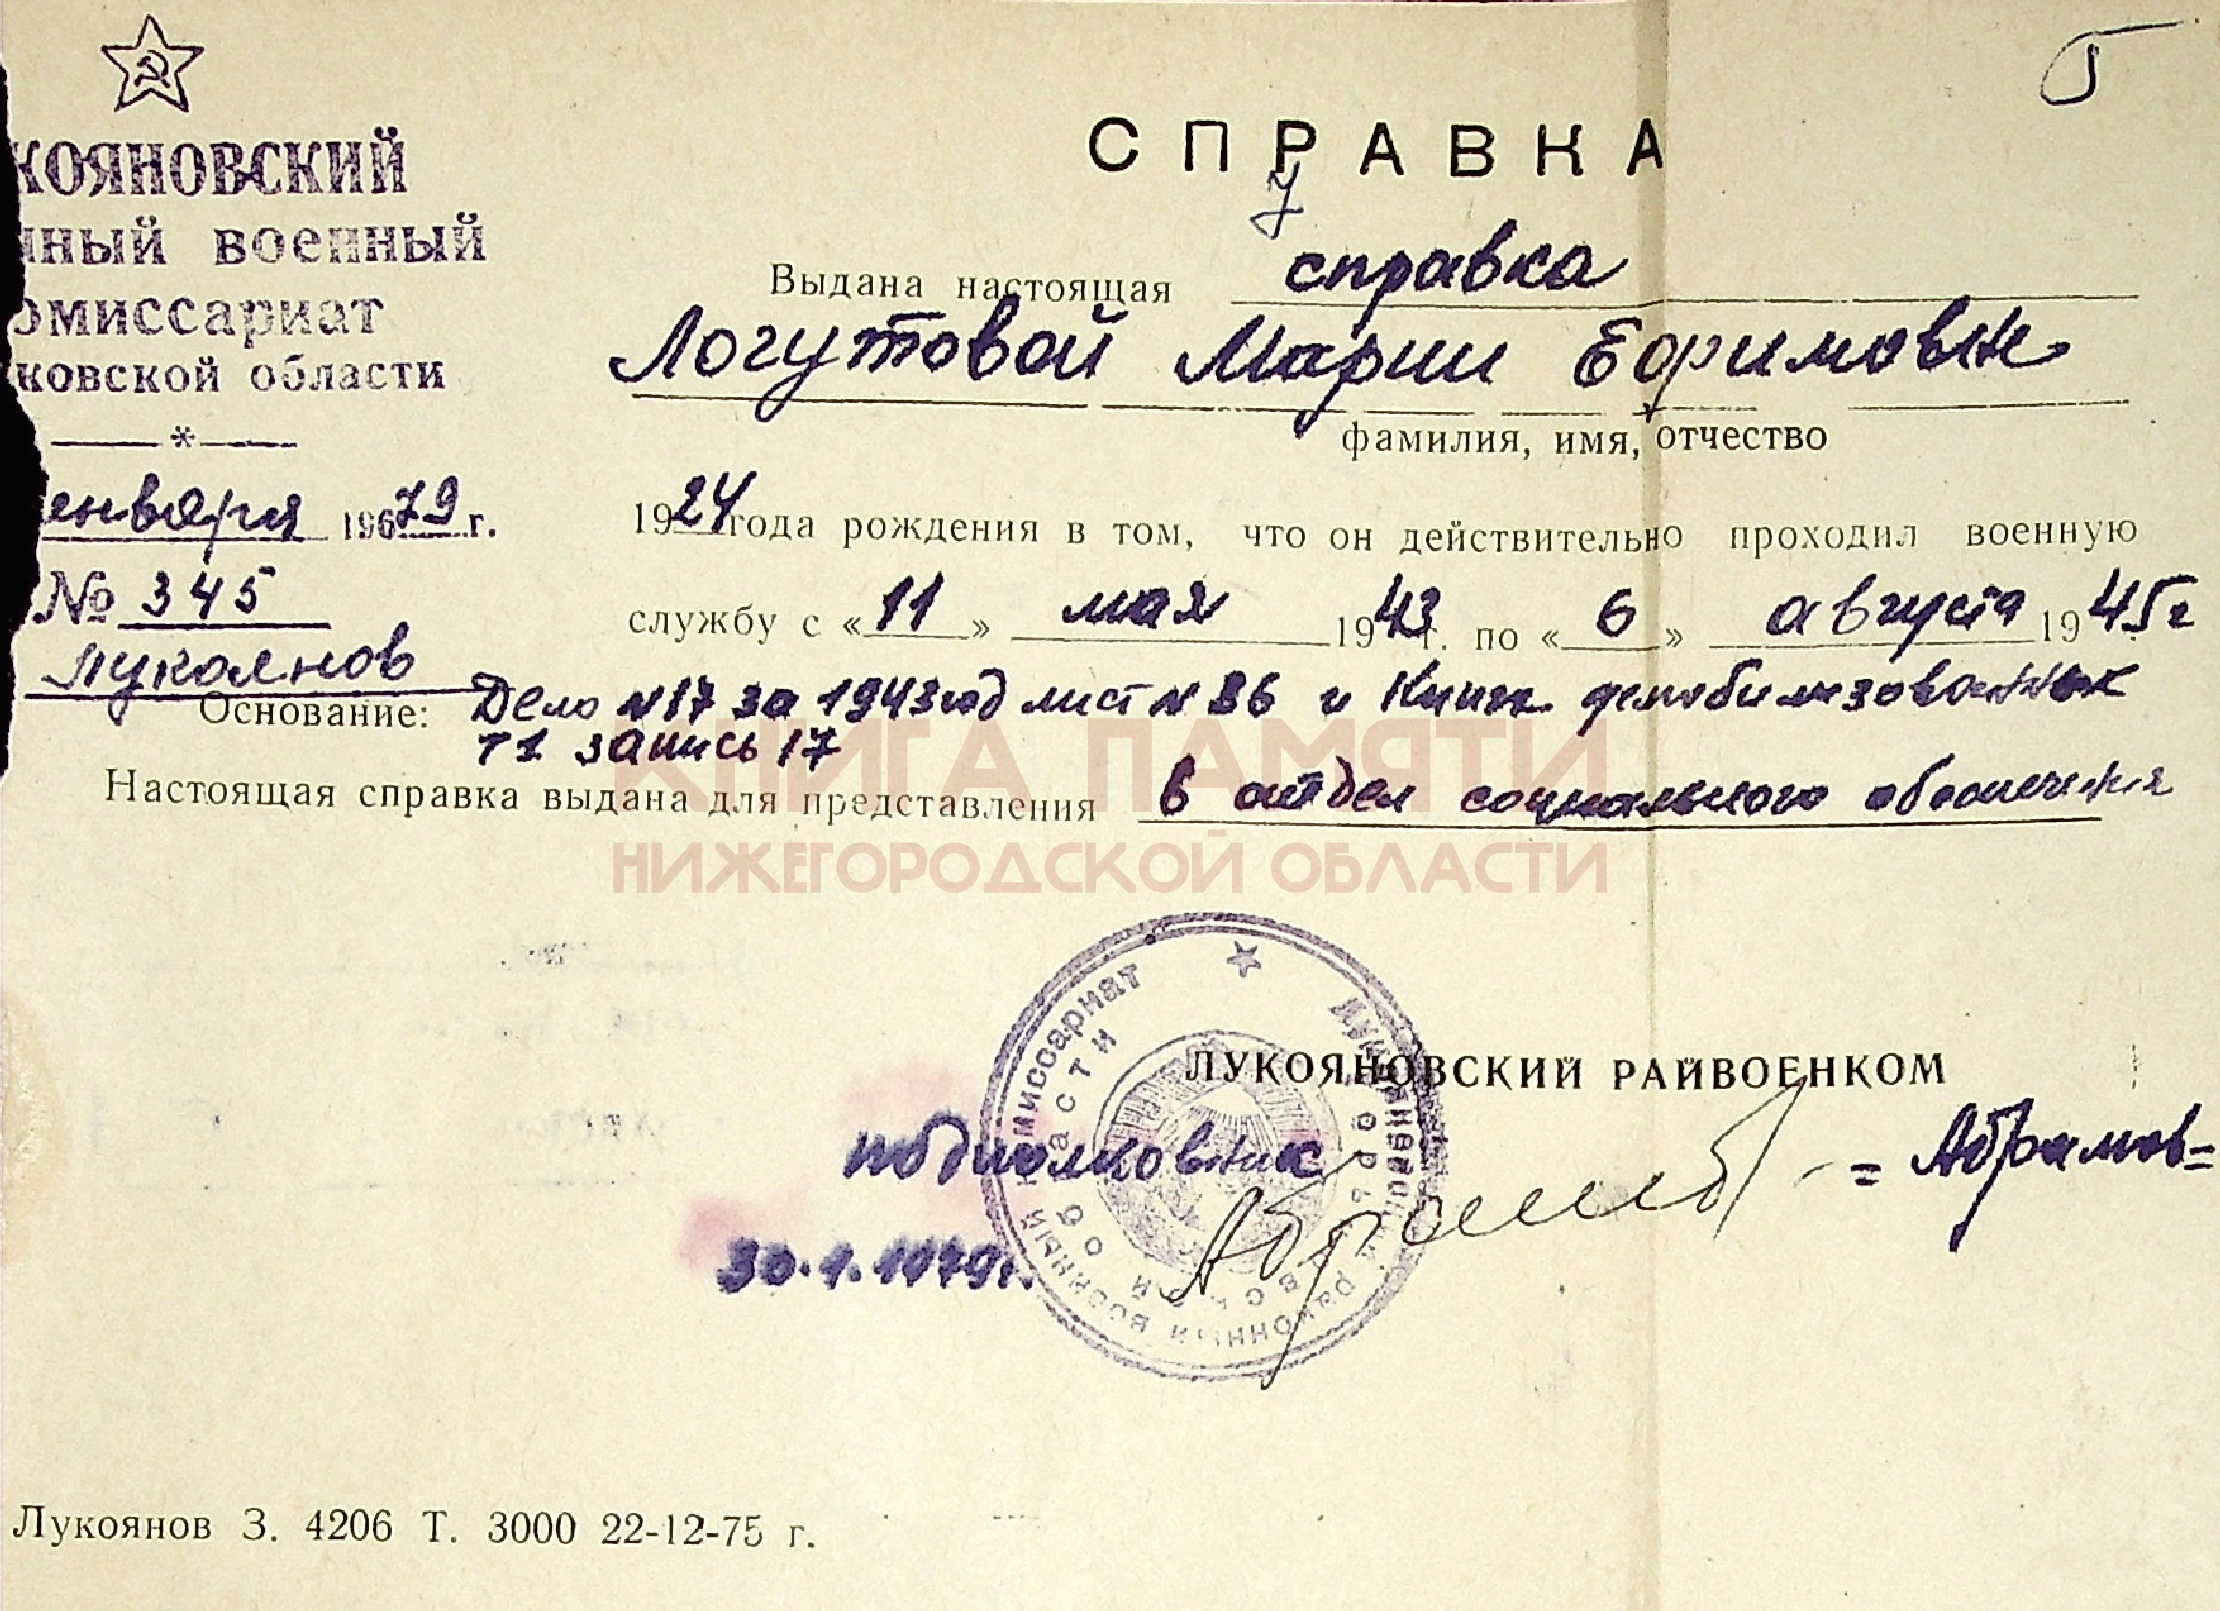 КОЯНОВСКИЙ
НЫЙ ВОЕННЫЙ
ОМИССАРИАТ
КОВСКОЙ ОБЛАСТИ
*
января 19679 г.
№ 345
Лукоянов
СПРАВКА
7
Выдана настоящая справка
Логутовой Марии Ефимовне
фамилия, имя, отчество
1924 года рождения в том, что он действительно проходил военную
службу с «11» мая 1943 г. по «6» августа 1945 г
Основание: Дело №17 за 1943 год лист № 86 и Книга демобилизованных
т 1 запись 17
Настоящая справка выдана для представления в отдел социального обеспечения
КНИГА ПАМЯТИ
НИЖЕГОРОДСКОЙ ОБЛАСТИ
ЛУКОЯНОВСКИЙ РАЙВОЕНКОМ
подполковник Абрамов = Абрамов =
30.1.1979 г.
Лукояновский районный военный комиссариат
Горьковской области
Лукоянов З. 4206 Т. 3000 22-12-75 г.